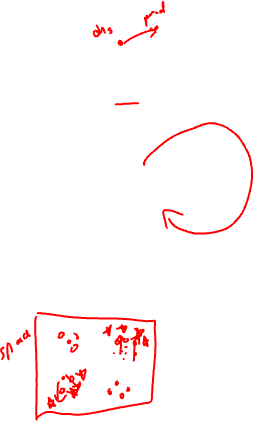 obs
pred
space